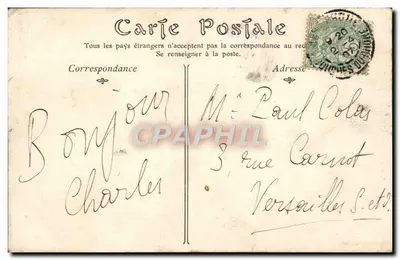 Carte Postale
Tous les pays étrangers n'acceptent pas la correspondance au
Se renseigner à la poste.
Correspondance
Adresse
Bonjour
Charles
Mr Paul Colas
3, rue Carnot
Versailles S-et-
CPARAMA